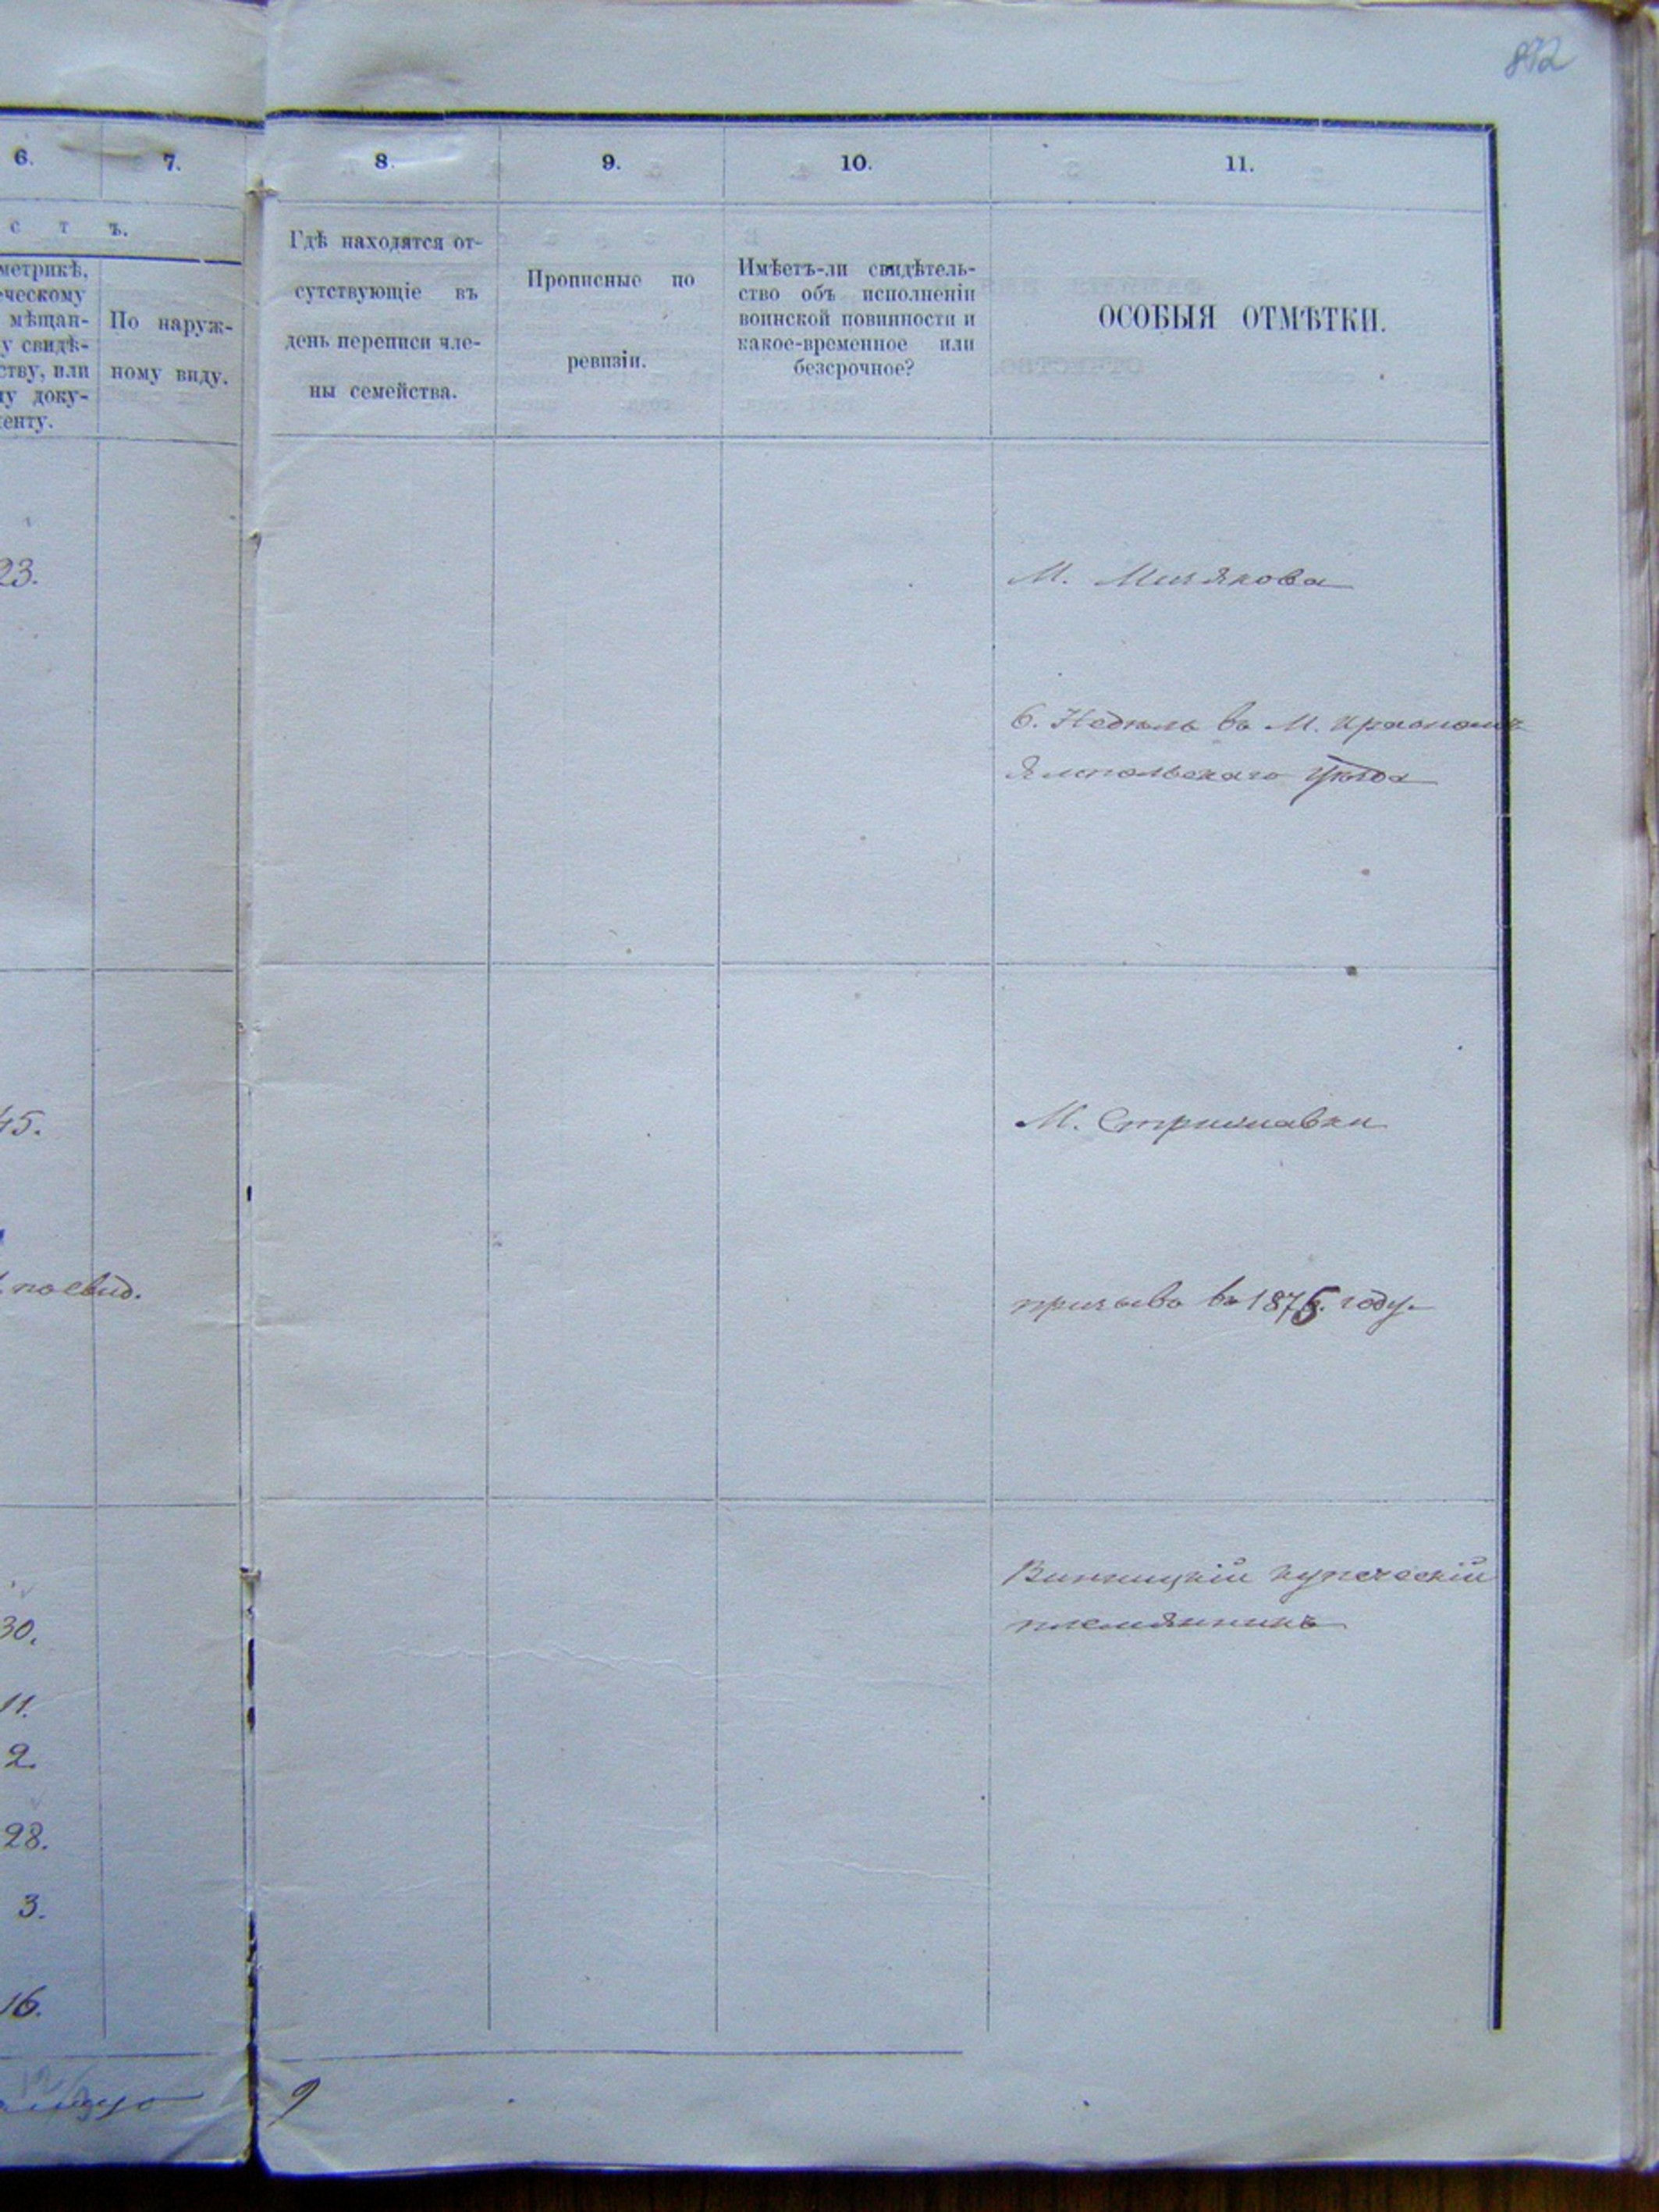 892
6.
7.
8.
9.
10.
11.
с т ъ.
метрикѣ,
еческому
мѣщан-
у свидѣ-
ству, или
му доку-
енту.
По наруж-
ному виду.
Гдѣ находятся от-
сутствующіе въ
день переписи чле-
ны семейства.
Прописные по
ревизіи.
Имѣетъ-ли свидѣтель-
ство объ исполненіи
воинской повинности и
какое-временное или
безсрочное?
ОСОБЫЯ ОТМѢТКИ.
23.
М. Мизякова
6. Недѣль въ М.
Ямпольскаго Уѣзда
45.
М. Стрижавки
по свид.
призывъ въ 1875. году.
Винницкій купеческій
племянникъ
30.
11.
2.
28.
3.
16.
9